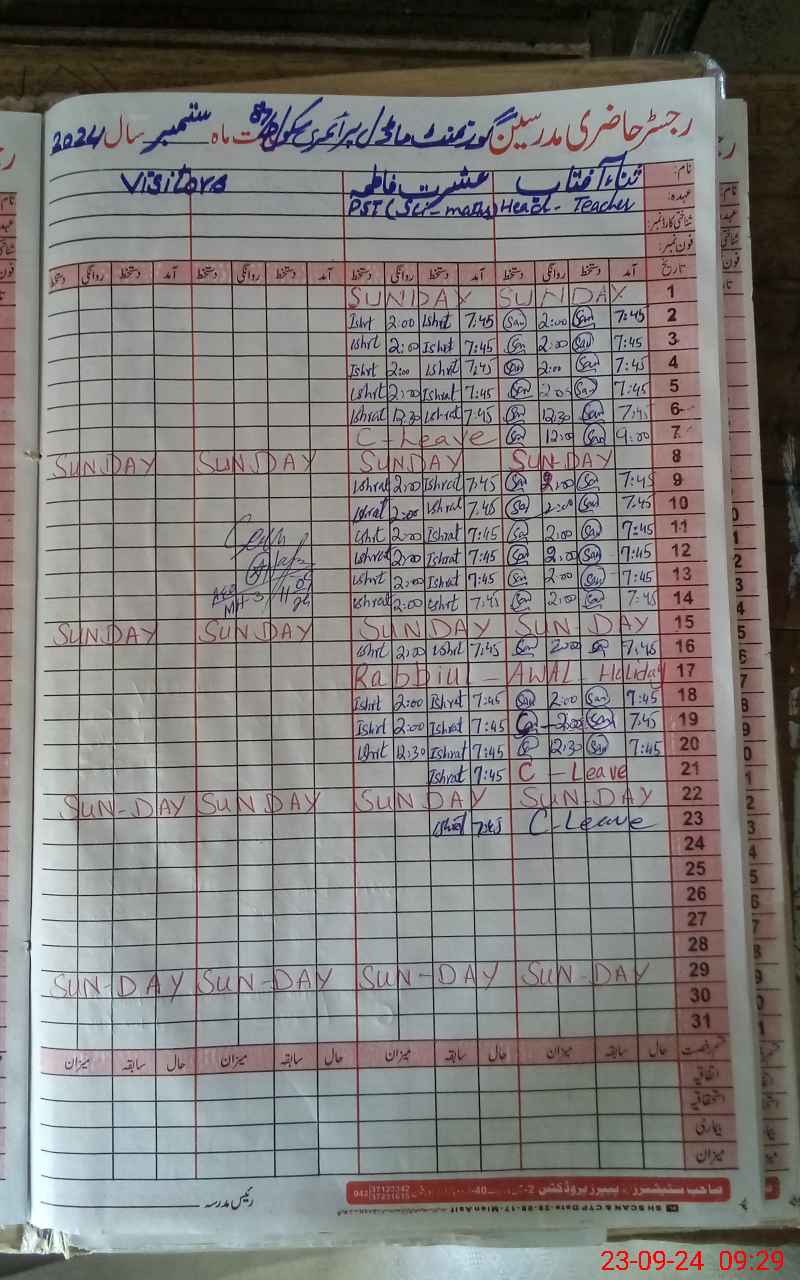 رجسٹر حاضری مدرسین گورنمنٹ ماڈل پرائمری سکول ماہ ستمبر سال 2024
نام: ثناء آفتاب عشرت فاطمہ Visitors
عہدہ: Head - Teacher PST (Sci-maths)
شناختی کارڈ نمبر:
فون نمبر:
تاریخ آمد دستخط روانگی دستخط آمد دستخط روانگی دستخط آمد دستخط روانگی دستخط آمد دستخط روانگی دستخط
SUNDAY SUNDAY 1
Ishrt 2:00 Ishrt 7:45 San 2:00 San 7:45 2
Ishrt 2:00 Ishrt 7:45 San 2:00 San 7:45 3
Ishrt 2:00 Ishrt 7:45 San 2:00 San 7:45 4
Ishrt 2:00 Ishrat 7:45 San 2:00 San 7:45 5
Ishrat 12:30 Ishrat 7:45 San 12:30 San 7:45 6
C-Leave San 12:00 San 9:00 7
SUNDAY SUNDAY SUNDAY SUN-DAY 8
Ishrat 2:00 Ishrat 7:45 San 2:00 San 7:45 9
Ishrat 2:00 Ishrat 7:45 San 2:00 San 7:45 10
Ishrt 2:00 Ishrat 7:45 San 2:00 San 7:45 11
Ishrat 2:00 Ishrat 7:45 San 2:00 San 7:45 12
Ishrt 2:00 Ishrat 7:45 San 2:00 San 7:45 13
Ishrat 2:00 Ishrt 7:45 San 2:00 San 7:45 14
SUNDAY SUNDAY SUNDAY SUN-DAY 15
Ishrt 2:00 Ishrt 7:45 San 2:00 7:45 16
Rabbiul - AWAL - Holiday 17
Ishrt 2:00 Ishrat 7:45 San 2:00 San 7:45 18
Ishrt 2:00 Ishrat 7:45 2:00 San 7:45 19
Ishrt 12:30 Ishrat 7:45 12:30 San 7:45 20
Ishrat 7:45 C - Leave 21
SUN-DAY SUNDAY SUNDAY SUN-DAY 22
Ishrat 7:45 C-Leave 23
24
25
26
27
28
SUN-DAY SUN-DAY SUN-DAY SUN-DAY 29
30
31
قسم رخصت حال سابقہ میزان حال سابقہ میزان حال سابقہ میزان حال سابقہ میزان
اتفاقیہ
استحقاقیہ
بیماری
میزان
رئیس مدرسہ
23-09-24 09:29